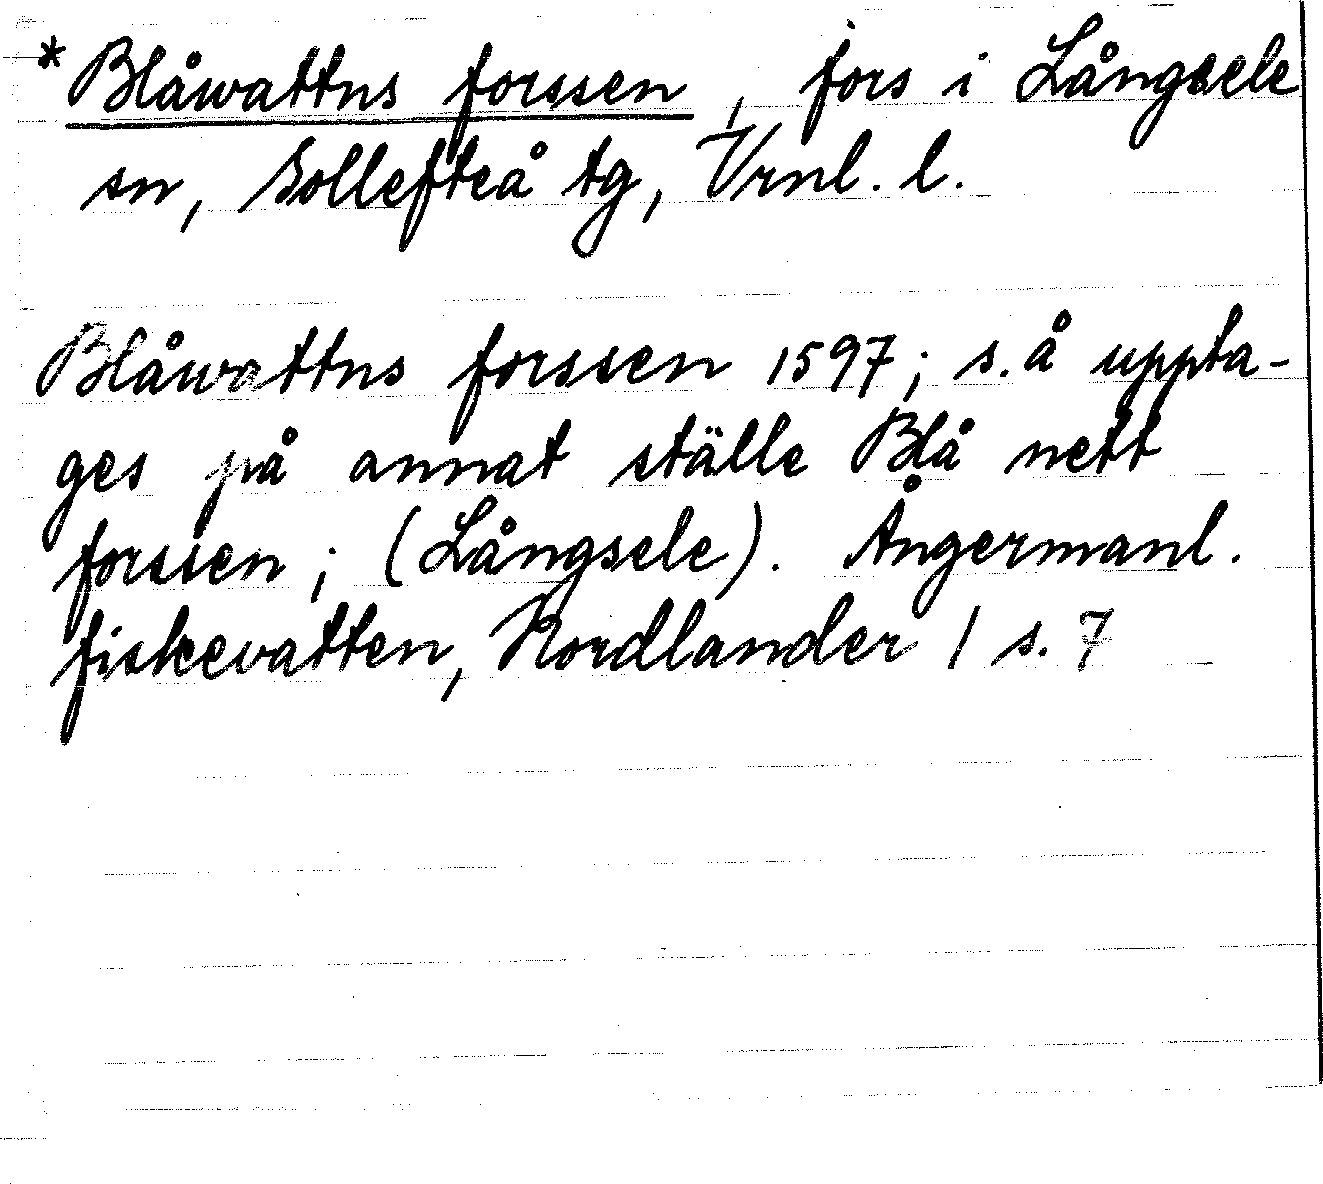 * Blåwattns forssen, fors i Långsele
sn, Sollefteå tg, Vrnl. l.
Blåwattns forssen 1597; s.å uppta-
ges på annat ställe Blå nett
forssen; (Långsele). Ångermanl.
fiskevatten, Nordlander 1 s. 7